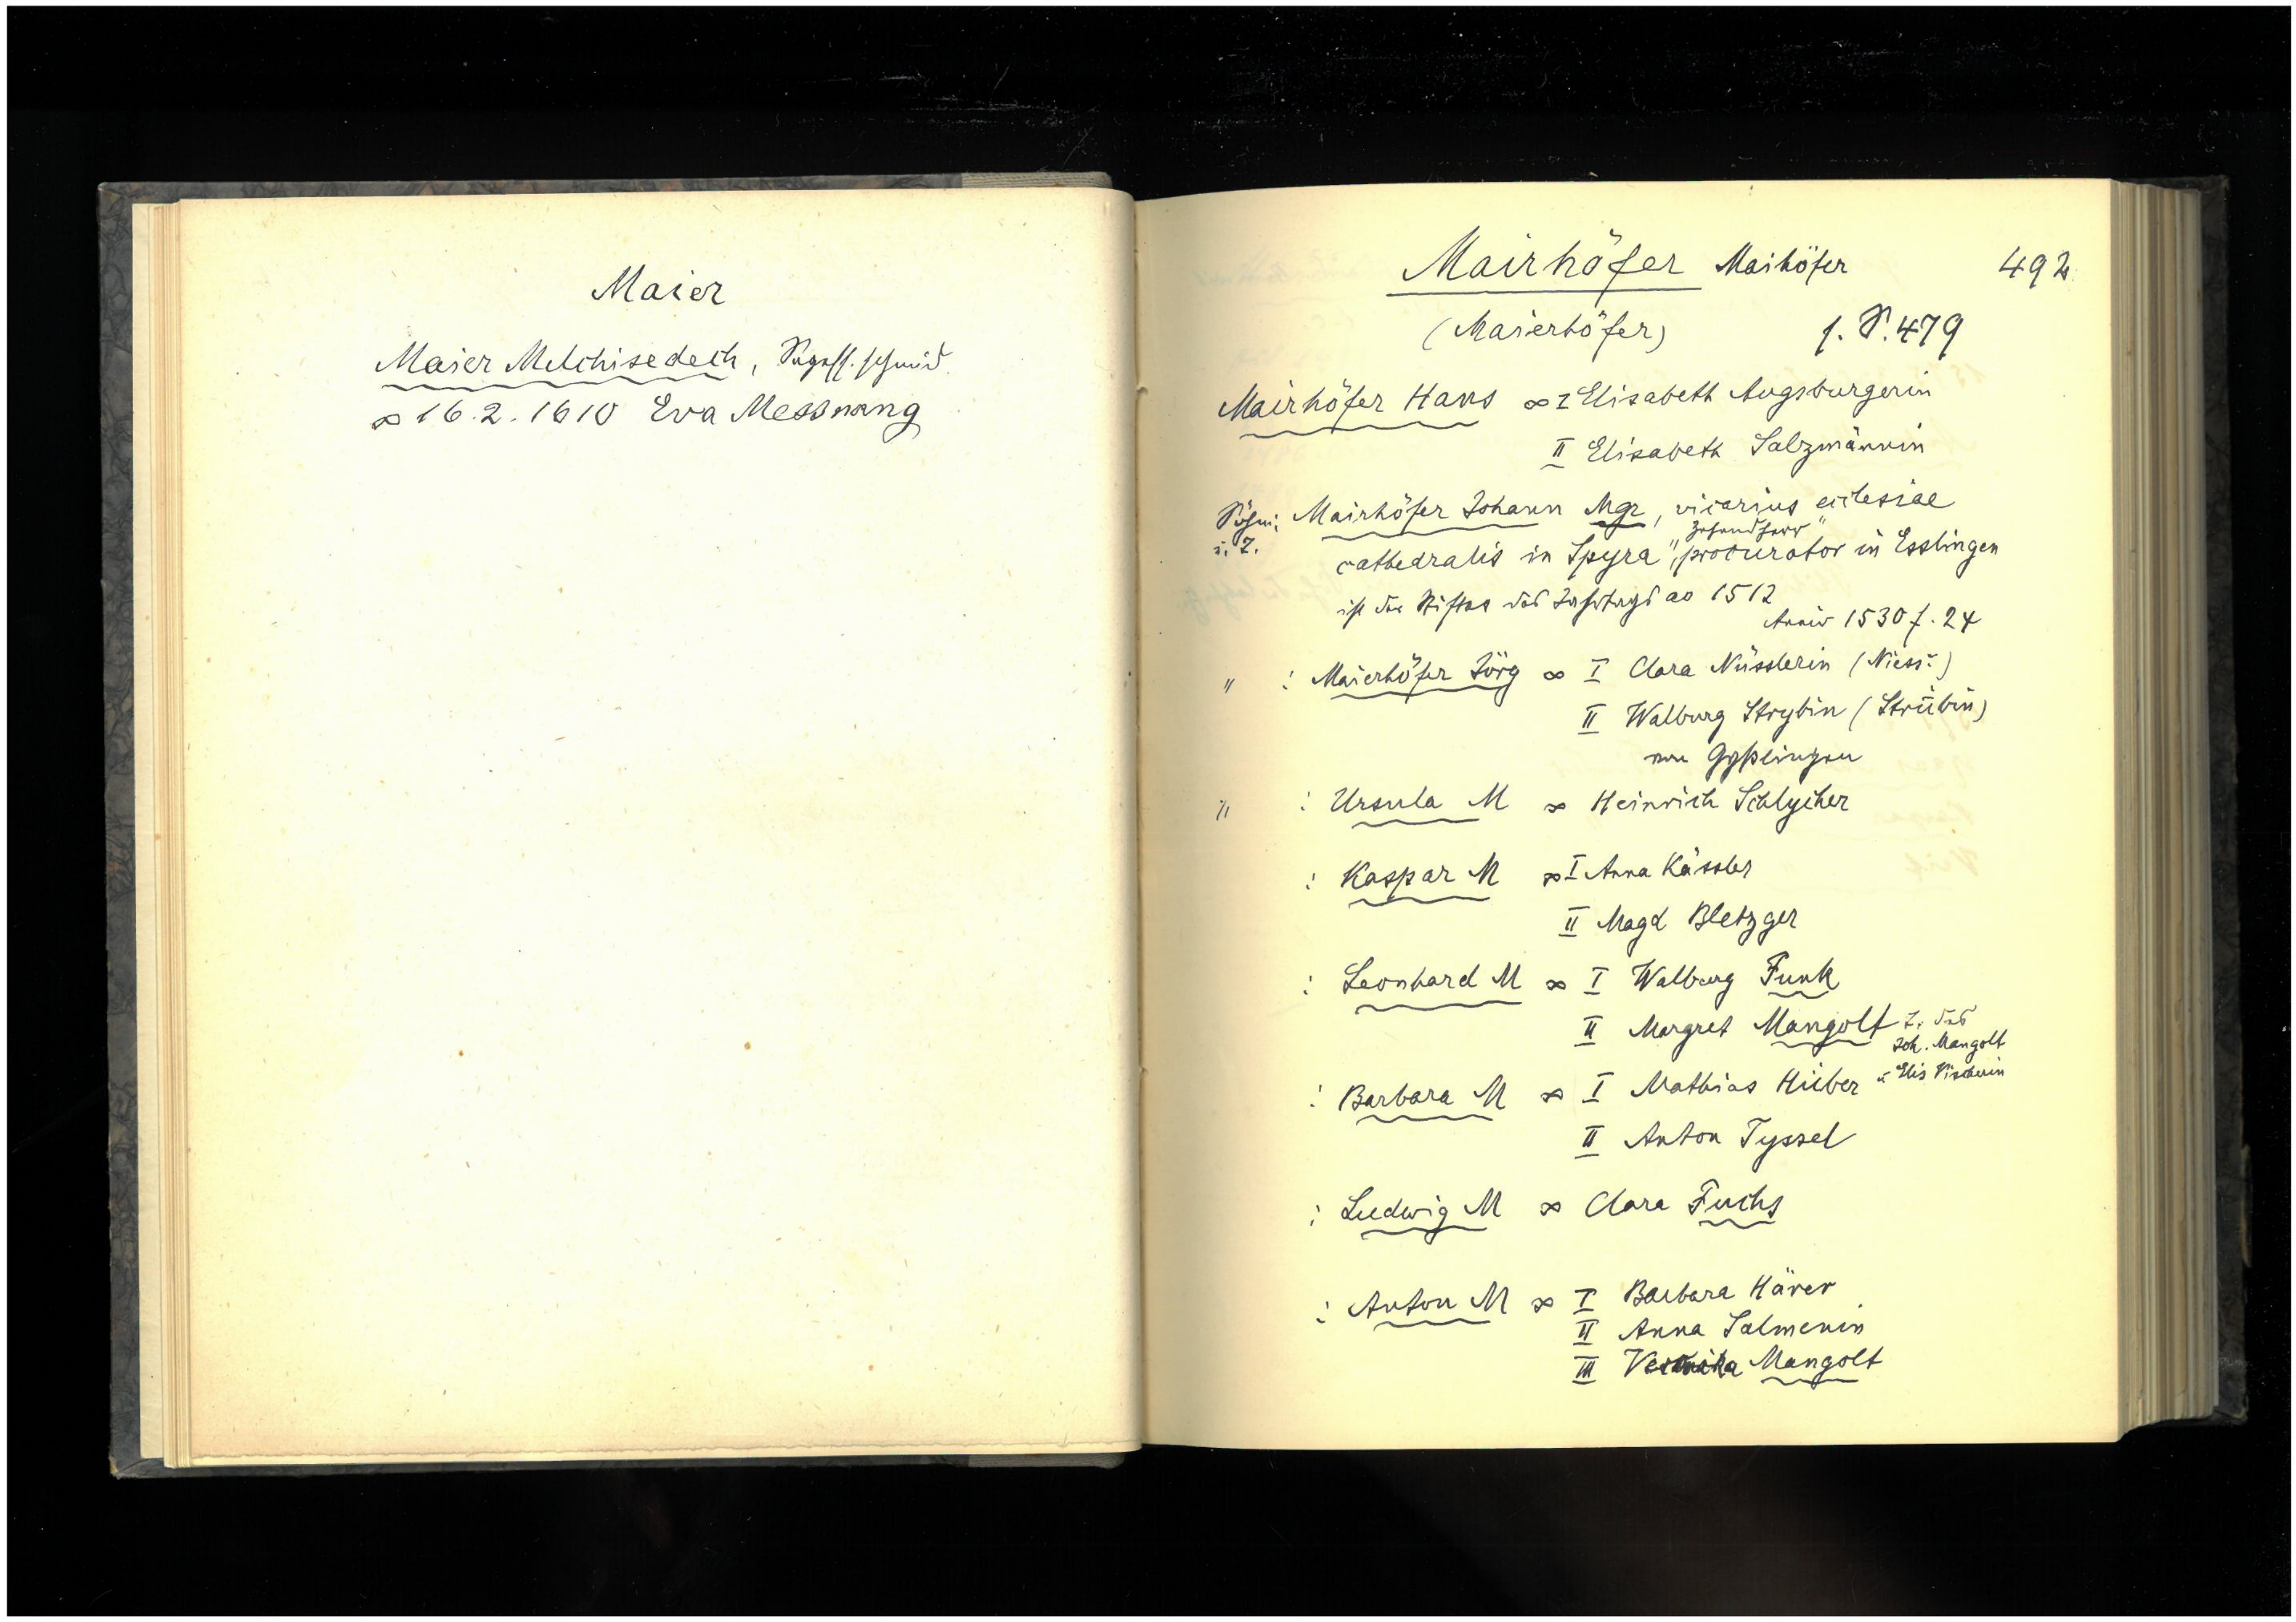 Maier
Maier Melchisedech, schmid
∞ 16.2.1610 Eva Messnang
Mairhöfer Maihöfer 492
(Maierhöfer) s. S. 479
Mairhöfer Hans ∞ I Elisabeth Augsburgerin
II Elisabeth Salzmännin
Söhne Mairhöfer Johann Mgr, vicarius ecclesiae
u. T.
cathedralis in Spyra, procurator in Esslingen
ist der Stifter des Jahrtags ao 1512
Anniv 1530 f. 24
" : Maierhöfer Jörg ∞ I Clara Nüsslerin (Niess:)
II Walburg Strybin (Strübin)
von Gyslingen
" : Ursula M ∞ Heinrich Schlycher
: Kaspar M ∞ I Anna Kässler
II Magd Bletzger
: Leonhard M ∞ I Walburg Funk
II Margret Mangolt T. des
Joh. Mangolt
u Elis Vischerin
: Barbara M ∞ I Mathias Hüber
II Anton Tyssel
: Ludwig M ∞ Clara Fuchs
: Anton M ∞ I Barbara Härer
II Anna Salmenin
III Veronika Mangolt